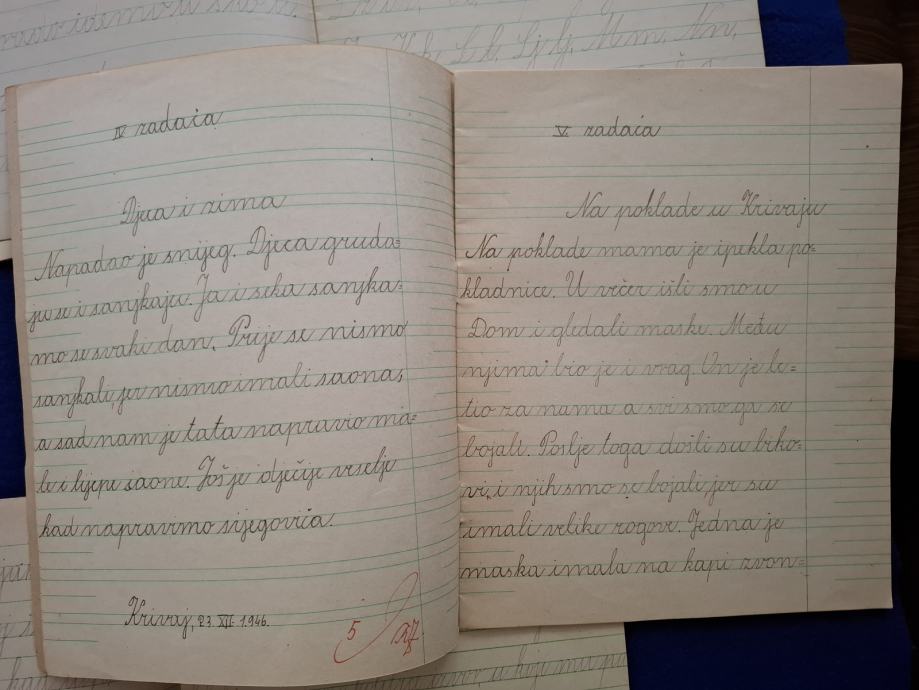 IV zadaća
Djeca i zima
Napadao je snijeg. Djeca gruda=
ju se i sanjkaju. Ja i seka sanjka-
mo se svaki dan. Prije se nismo
sanjkali, jer nismo imali saona,
a sad nam je tata napravio ma=
le i lijepe saone. Još je dječije veselje
kad napravimo sijegovića.
Krivaj, 23. XII. 1946.
5
V. zadaća
Na poklade u Krivaju
Na poklade mama je ipekla po=
kladnice. U večer išli smo u
Dom i gledali maske. Među
njima bio je i vrag. On je le=
tio za nama a svi smo ga se
bojali. Poslje toga došli su brko=
vi, i njih smo se bojali, jer su
imali velike rogove. Jedna je
maska imala na kapi zvon=